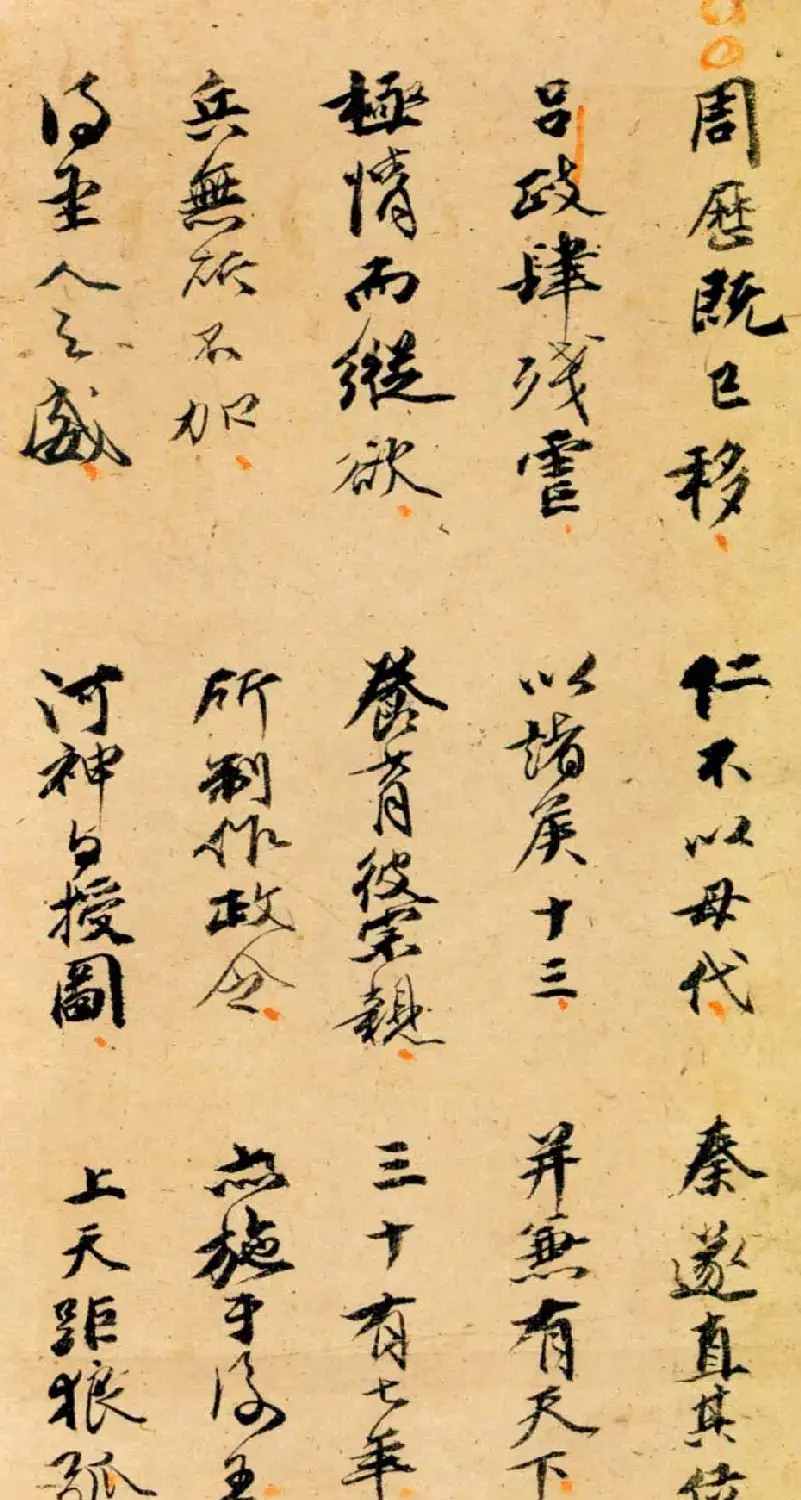 周歷既已移 仁不以母代 秦遂直其位
呂政肆残虐 以諸侯十三 并兼有天下
極情而縱欲 養育彼宗親 三十有七年
兵無所不加 所制作政令 亦施于後王
得聖人之威 河神与授圖 上天距狼弧